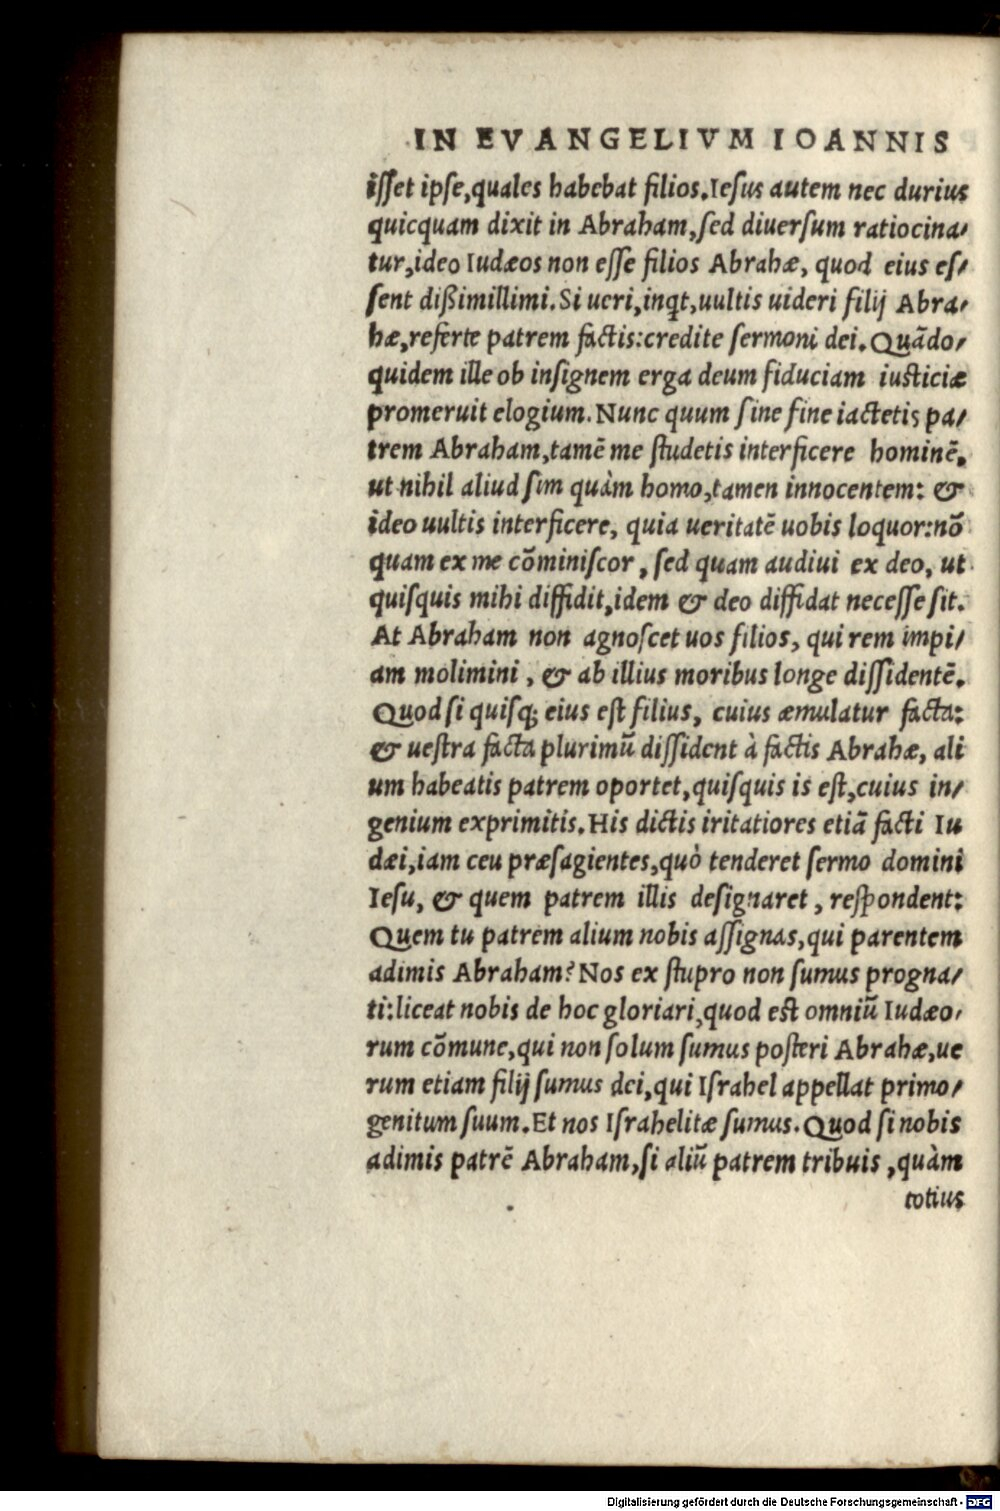 IN EVANGELIVM IOANNIS
iſſet ipſe,quales habebat filios.Ieſus autem nec durius
quicquam dixit in Abraham,ſed diuerſum ratiocina/
tur,ideo Iudæos non eſſe filios Abrahæ, quod eius eſ/
ſent dißimillimi.Si ueri,inqt,uultis uideri filij Abra/
hæ,referte patrem factis:credite ſermoni dei.Quãdo/
quidem ille ob inſignem erga deum fiduciam iusticiæ
promeruit elogium.Nunc quum ſine fine iactetis pa/
trem Abraham,tamẽ me ſtudetis interficere hominẽ,
ut nihil aliud ſim quàm homo,tamen innocentem: &
ideo uultis interficere, quia ueritatẽ uobis loquor:nõ
quam ex me cõminiſcor, ſed quam audiui ex deo, ut
quiſquis mihi diffidit,idem & deo diffidat neceſſe ſit.
At Abraham non agnoſcet uos filios, qui rem impi/
am molimini, & ab illius moribus longe diſſidentẽ.
Quod ſi quiſq; eius eſt filius, cuius æmulatur facta:
& ueſtra facta plurimũ diſſident à factis Abrahæ, ali
um habeatis patrem oportet,quiſquis is eſt,cuius in/
genium exprimitis.His dictis iritatiores etiã facti Iu
dæi,iam ceu præſagientes,quò tenderet ſermo domini
Ieſu, & quem patrem illis deſignaret, reſpondent:
Quem tu patrem alium nobis aſſignas,qui parentem
adimis Abraham?Nos ex ſtupro non ſumus progna/
ti:liceat nobis de hoc gloriari,quod est omniũ Iudæo/
rum cõmune,qui non ſolum ſumus poſteri Abrahæ,ue
rum etiam filij ſumus dei,qui Iſrahel appellat primo/
genitum ſuum.Et nos Iſrahelitæ ſumus.Quod ſi nobis
adimis patrẽ Abraham,ſi aliũ patrem tribuis,quàm
totius
Digitalisierung gefördert durch die Deutsche Forschungsgemeinschaft - DFG